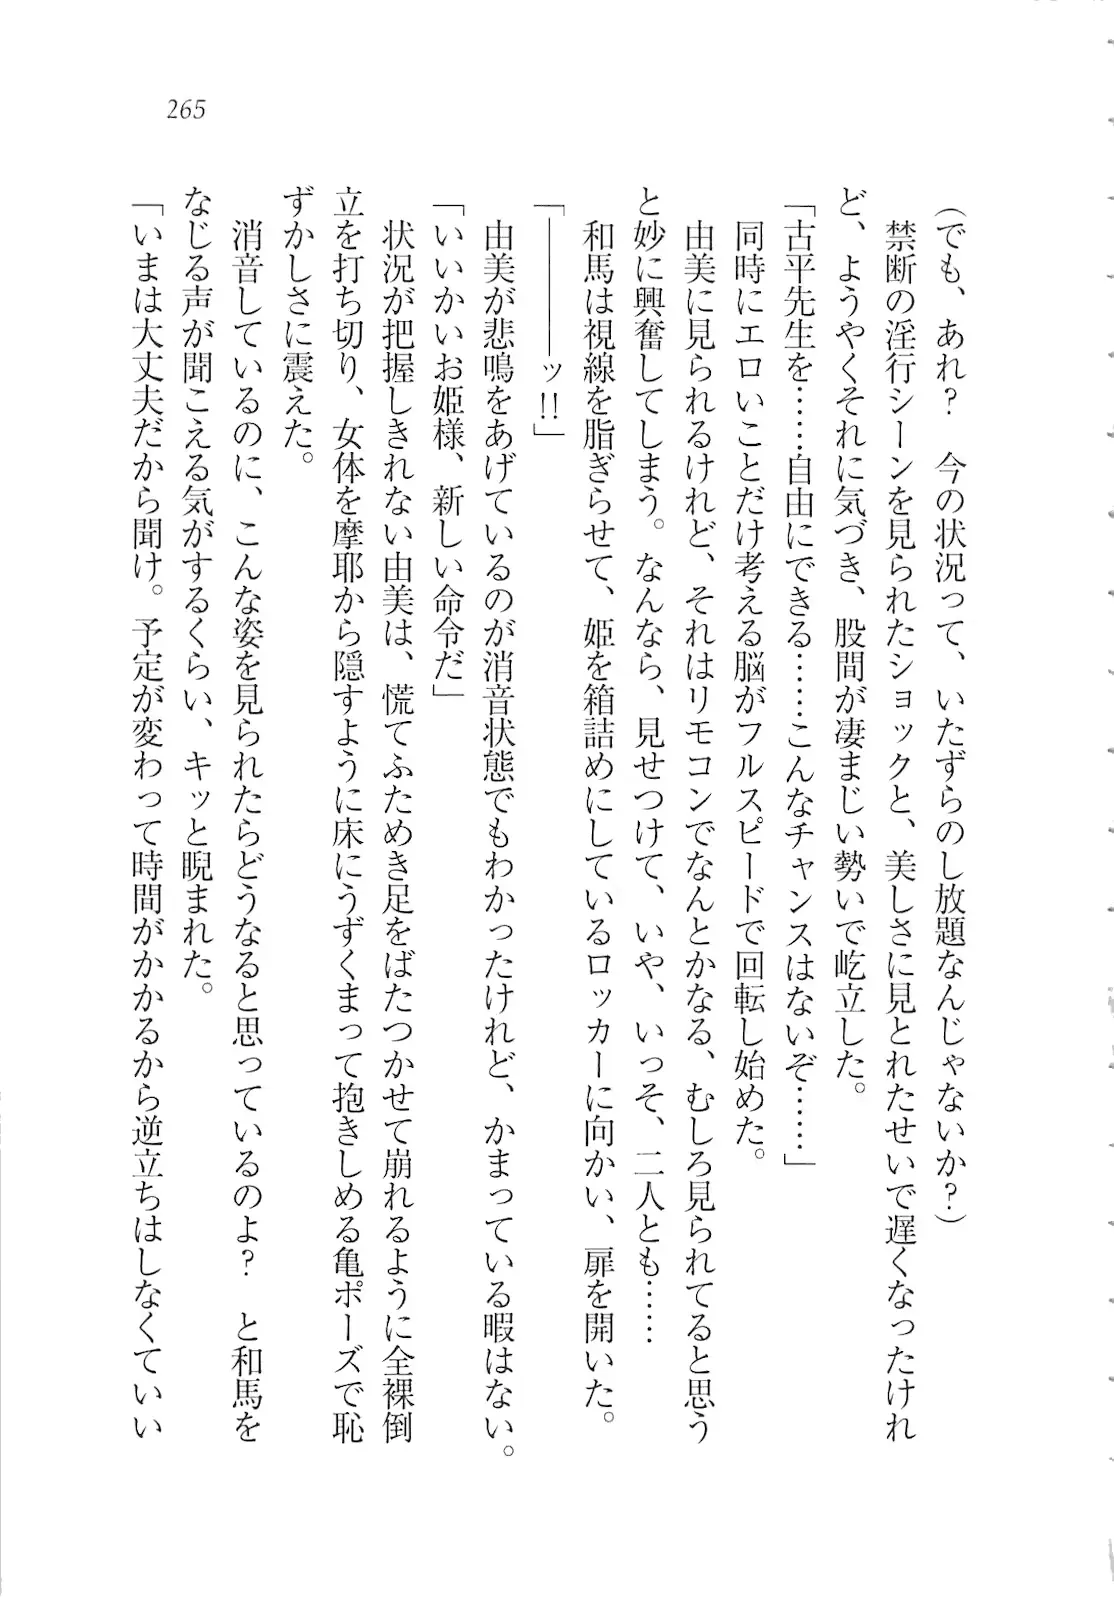 265
(でも、あれ?　今の状況って、いたずらのし放題なんじゃないか?)
　禁断の淫行シーンを見られたショックと、美しさに見とれたせいで遅くなったけれ
ど、ようやくそれに気づき、股間が凄まじい勢いで屹立した。
「古平先生を……自由にできる……こんなチャンスはないぞ……」
　同時にエロいことだけ考える脳がフルスピードで回転し始めた。
　由美に見られるけれど、それはリモコンでなんとかなる、むしろ見られてると思う
と妙に興奮してしまう。なんなら、見せつけて、いや、いっそ、二人とも……
　和馬は視線を脂ぎらせて、姫を箱詰めにしているロッカーに向かい、扉を開いた。
「――――ッ!!」
　由美が悲鳴をあげているのが消音状態でもわかったけれど、かまっている暇はない。
「いいかいお姫様、新しい命令だ」
　状況が把握しきれない由美は、慌てふためき足をばたつかせて崩れるように全裸倒
立を打ち切り、女体を摩耶から隠すように床にうずくまって抱きしめる亀ポーズで恥
ずかしさに震えた。
　消音しているのに、こんな姿を見られたらどうなると思っているのよ?　と和馬を
なじる声が聞こえる気がするくらい、キッと睨まれた。
「いまは大丈夫だから聞け。予定が変わって時間がかかるから逆立ちはしなくていい